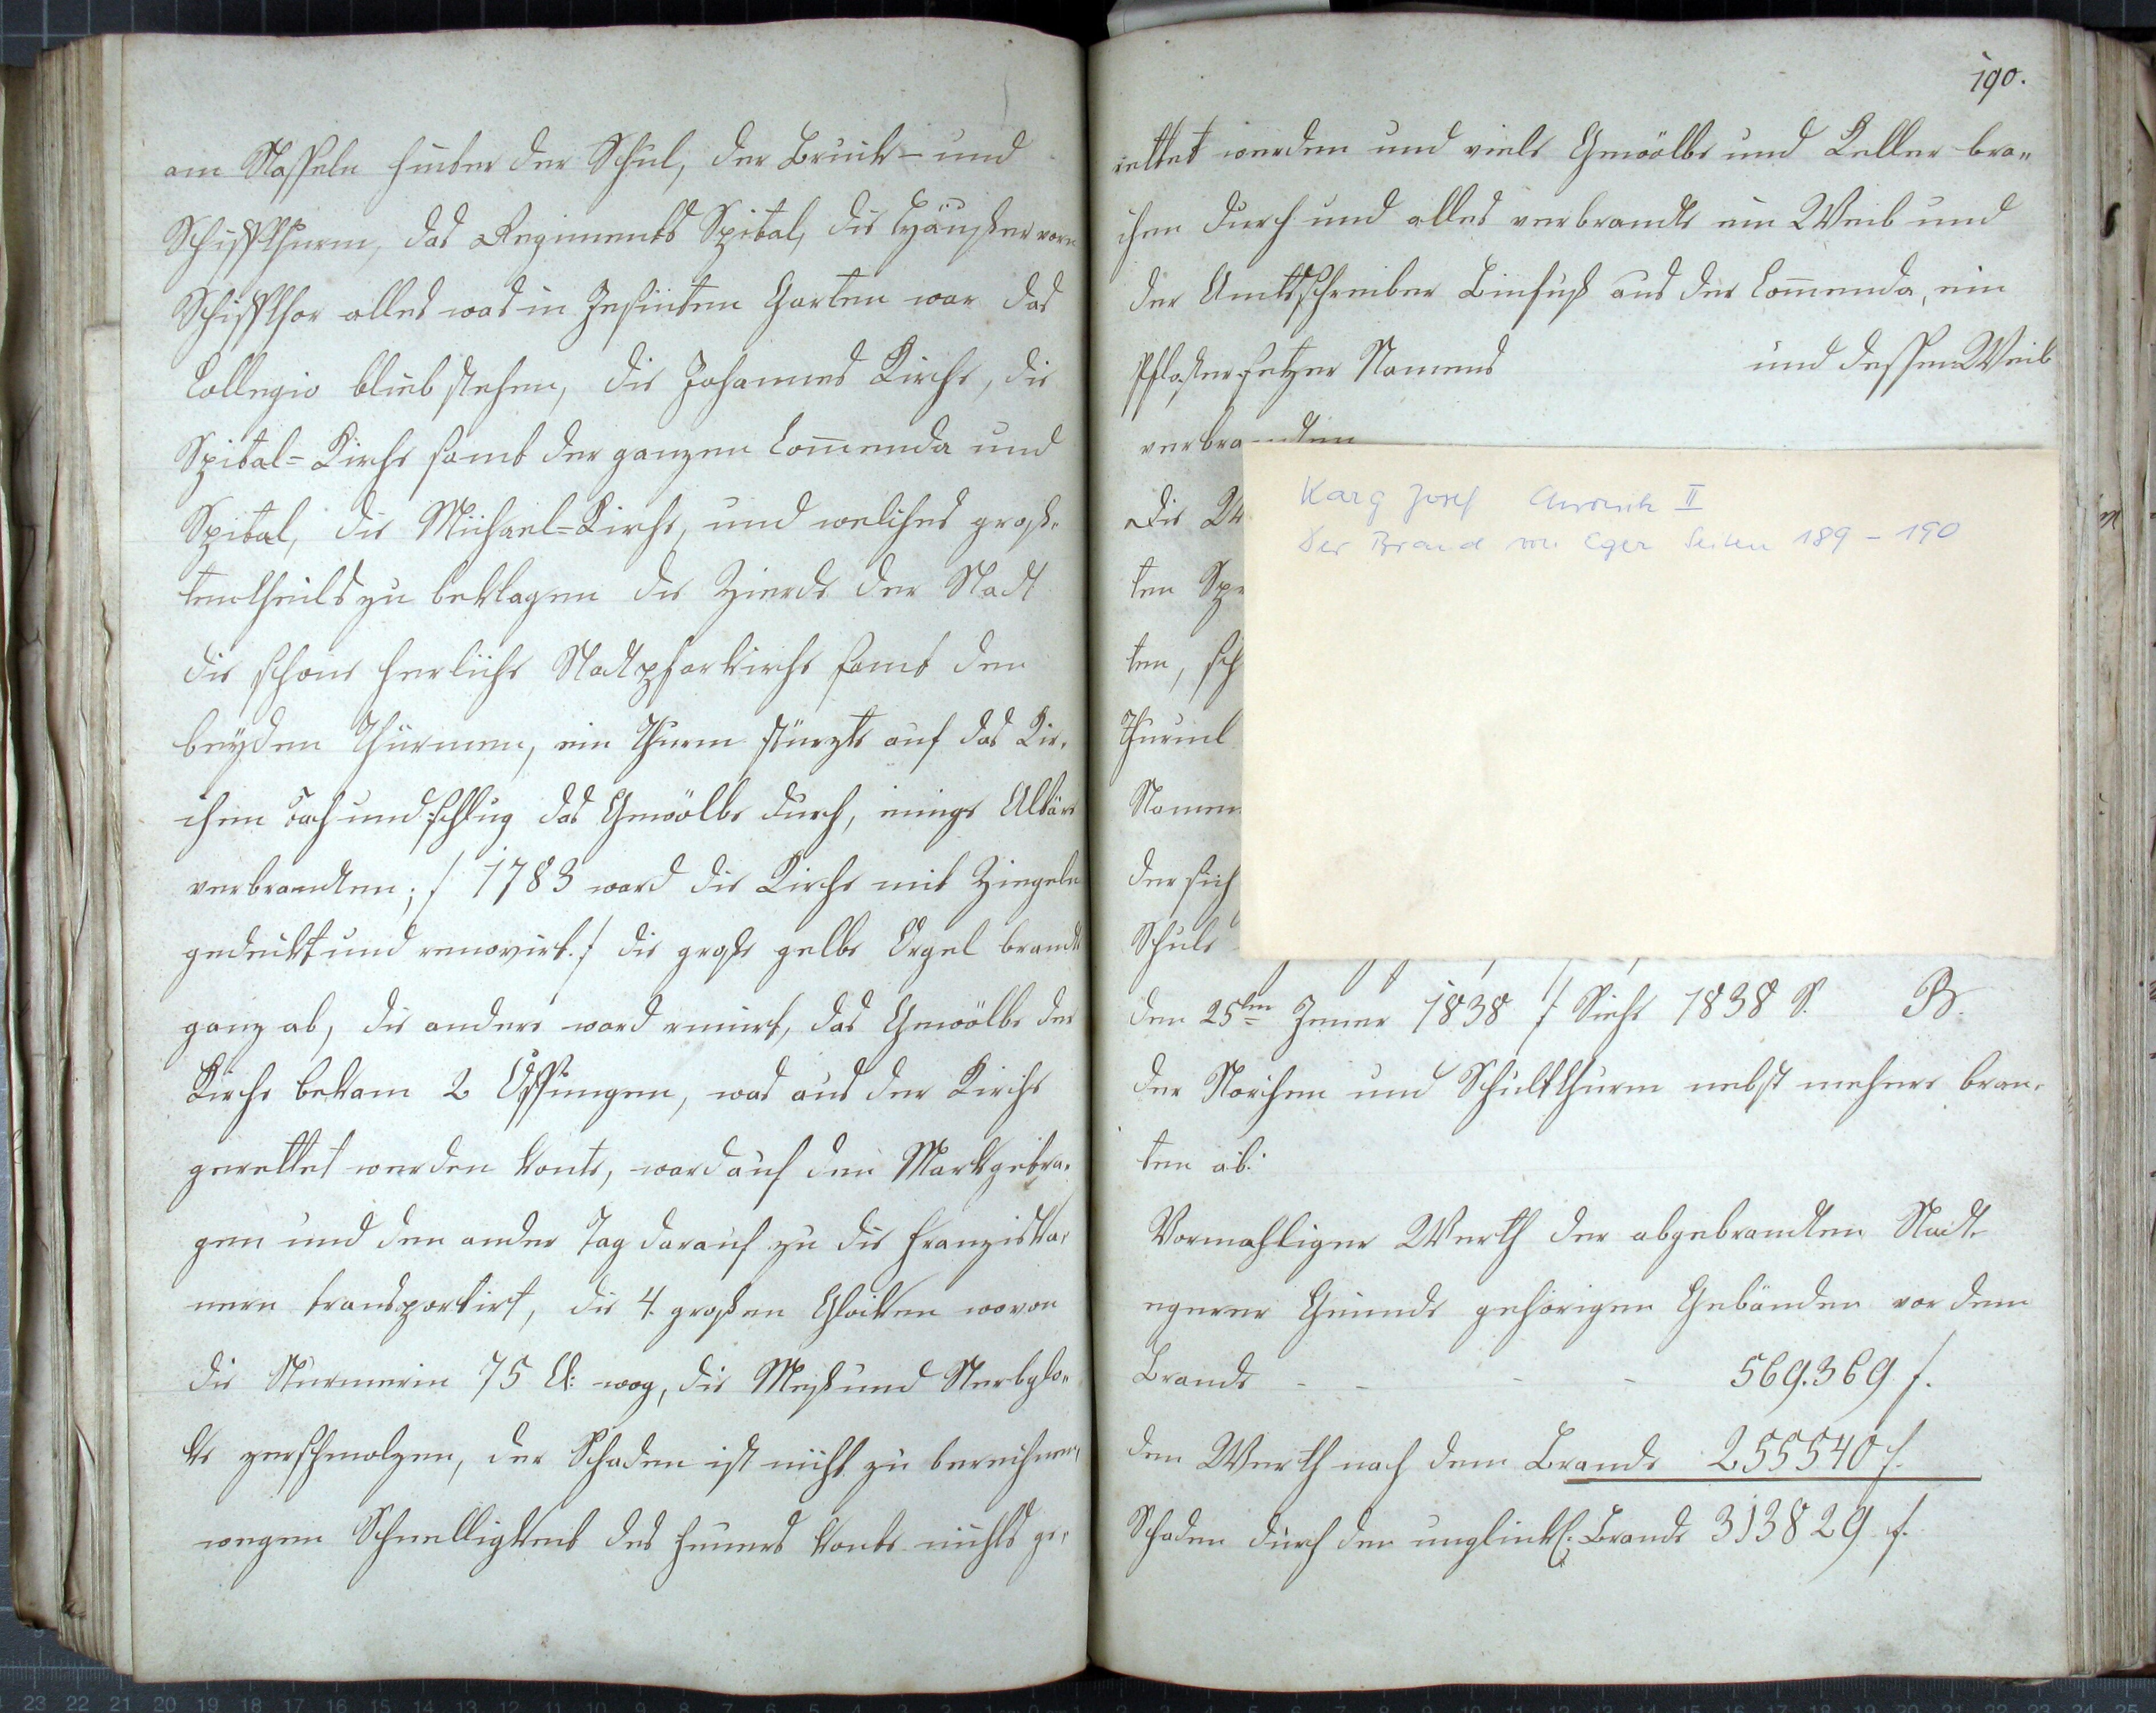 am Stasseln hinter der Schul, der Bruck- und
Schiffthurm, das Regiments Spital, die Häußer vorn
Schiffthor alles was in Jesuiten Garten war das
Collegio blieb stehen, die Johannes Kirche, die
Spital-Kirche samt der ganzen Com̄enda und
Spital, die Michael-Kirche, und welches groß-
tentheils zu beklagen die Zierde der Stadt
die schöne herliche Stadtpfarkirche samt den
beyden Thürmen, ein Thurm stürzte auf das Kir-
chen Dach und schlug das Gewölbe durch, einige Altäre
verbrandten; /: 1783 ward die Kirche mit Ziegeln
gedeckt und renovirt./ die große gelbe Orgel brandt
ganz ab, die andere ward ruinirt, das Gewölbe der
Kirche bekam 2 Öffnungen, was aus der Kirche
gerettet werden konte, ward auf den Markt getra-
gen und den ander Tag darauf zu die Franziska-
nern transportirt, die 4. großen Glocken wovon
die Sturmerin 75 Ct: wog, die Meß und Sterbglo-
ke zerschmolzen, der Schaden ist nicht zu berechnen,
wegen Schnelligkeit des Feuers konte nichts ge-
190.
rettet werden und viele Gewölbe und Keller bra-
chen durch und alles verbrandte ein Weib und
der Amtsschreiber aus der Com̄enda, ein
Pflastersetzer Namens und dessen Weib
verbrandten
Karg Josef Chronik II
Der Brand von Eger Seiten 189 - 190
Die
ten
ten,
Thurml
Namen
der sich
Schule
den 25ten Jener 1838 / Siehe 1838 S. B.
der Storchen und Schultthurm nebst mehere bran-
ten ab.
Vormahliger Werth der abgebrandten Stadt
egerer Gemeinde gehörigen Gebäuden vor dem
Brande - - - - 569.369 f.
den Werth nach dem Brande 255540 f.
Schaden durch den unglückl: Brande 313829 f.